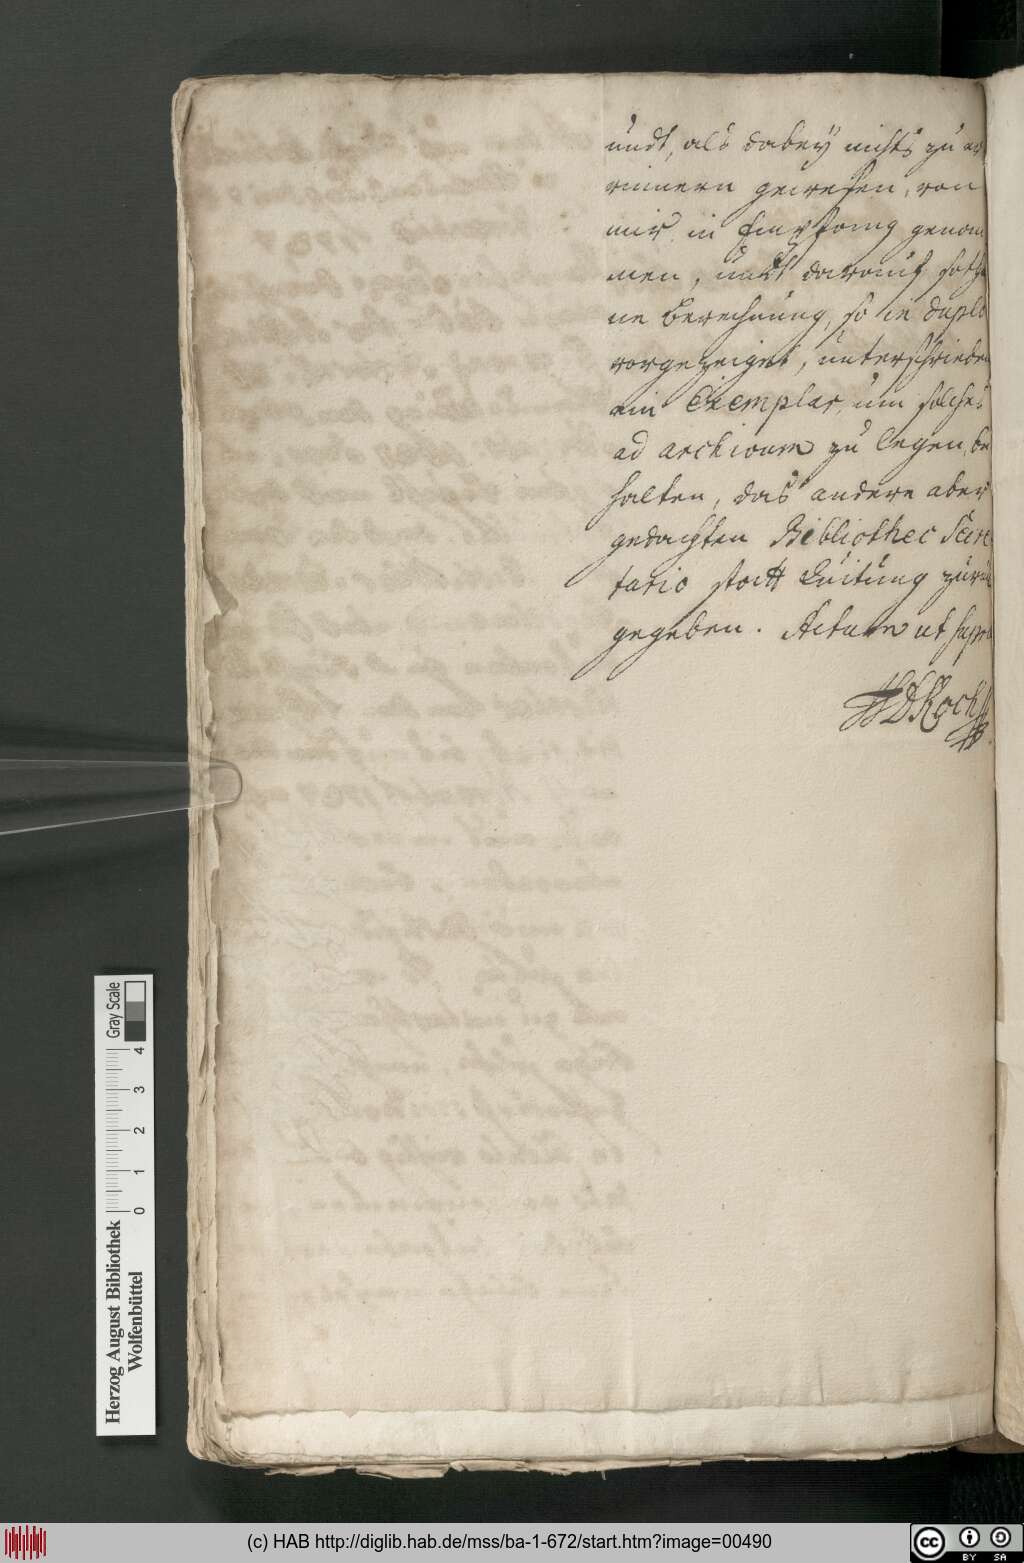 undt, als dabey nichts zu er
rinnern gewesen, von
mir in Empfang genom
men, undt darauf sotha
ne berechnung, so in duplo
vorgezeiget, unterschrieben
ein Exemplar, um solches
ad archivum zu legen, be
halten, das andere aber
gedachten Bibliothec Secre
tario statt Quitung zurück
gegeben. Actum ut supra
Koch
Herzog August Bibliothek
Wolfenbüttel
0 1 2 3 4
Gray Scale
(c) HAB http://diglib.hab.de/mss/ba-1-672/start.htm?image=00490
cc BY SA